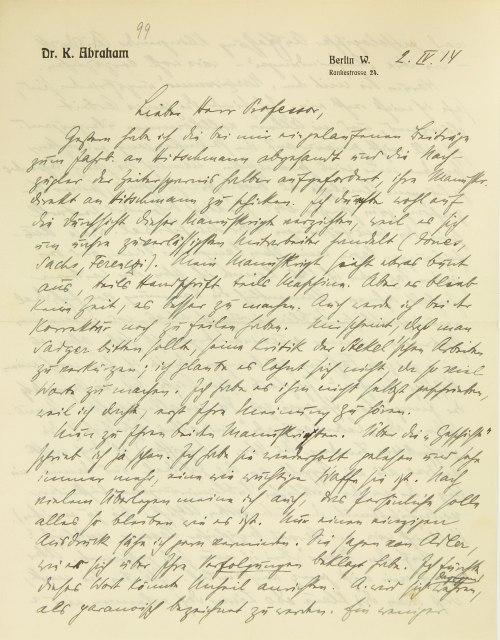 99
Dr. K. Abraham
Berlin W. 2. IV. 14
Rankestrasse 24.
Lieber Herr Professor,
Gestern habe ich die bei mir eingelaufenen Beiträge
zum Jahrb. an Hitschmann abgesandt und die Nach-
zügler der Zeitersparnis halber aufgefordert, ihre Manuskr.
direkt an Hitschmann zu schicken. Ich durfte wohl auf
die Durchsicht dieser Manuskripte verzichten, weil es sich
um unsre zuverlässigsten Mitarbeiter handelt (Jones,
Sachs, Ferenczi). Mein Manuskript sieht etwas bunt
aus, teils Handschrift teils Maschine. Aber es blieb
keine Zeit, es besser zu machen. Auch werde ich bei der
Korrektur noch zu feilen haben. Mir scheint, daß man
Sadger bitten sollte, seine Kritik der Stekel'schen Arbeiten
zu verkürzen; ich glaube es lohnt sich nicht, da so viel
Worte zu machen. Ich habe es ihm nicht selbst geschrieben,
weil ich dachte, erst Ihre Meinung zu hören.
Nun zu Ihren beiden Manuskripten. Über die „Geschichte"
schrieb ich ja schon. Ich habe sie wiederholt gelesen und sehe
immer mehr, eine wie wichtige Waffe sie ist. Nach
vielem Überlegen meine ich auch, das Persönliche solle
alles so bleiben wie es ist. Nur einen einzigen
Ausdruck sähe ich gern vermieden. Sie sagen von Adler,
wie er sich über Ihre Verfolgungen beklagt habe. Ich fürchte
dieses Wort könnte Unheil anrichten. A. wird sich wehren,
als paranoisch bezeichnet zu werden. Ein weniger